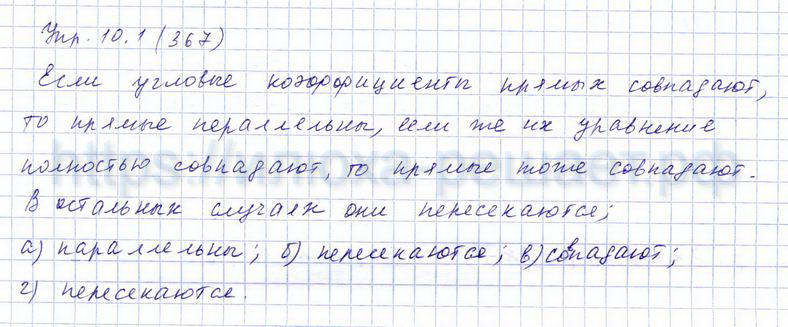 Упр. 10.1 (367)
Если угловые коэффициенты прямых совпадают,
то прямые параллельны, если же их уравнение
полностью совпадают, то прямые тоже совпадают.
В остальных случаях они пересекаются;
а) параллельны; б) пересекаются; в) совпадают;
г) пересекаются.